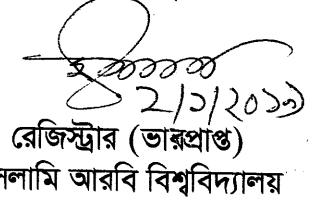 রেজিস্ট্রার (ভারপ্রাপ্ত)
সলামি আরবি বিশ্ববিদ্যালয়